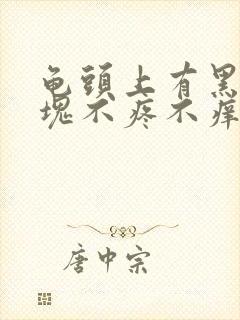 龟頭上有黑
塊不疼不痒
唐中宗